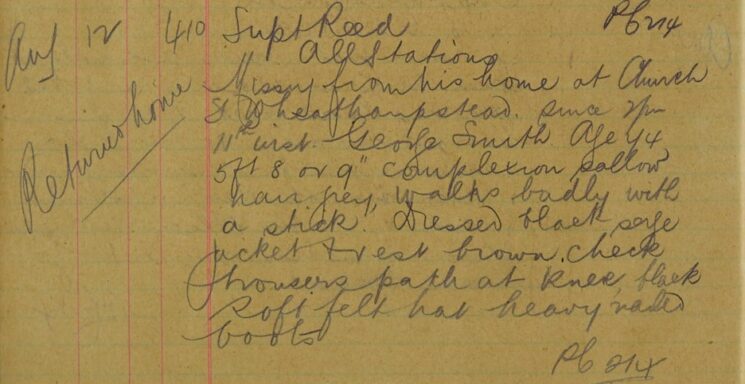 Aug 12 410 Supt Reed PC 214
All Stations
Missing from his home at Church
St Wheathampstead. since 2pm
11th inst. George Smith Age 74
5ft 8 or 9" complexion sallow
hair grey, walks badly with
a stick. Dressed black serge
jacket & vest brown check
trousers path at knee, black
soft felt hat heavy nailed
boots
PC 214
Returned home